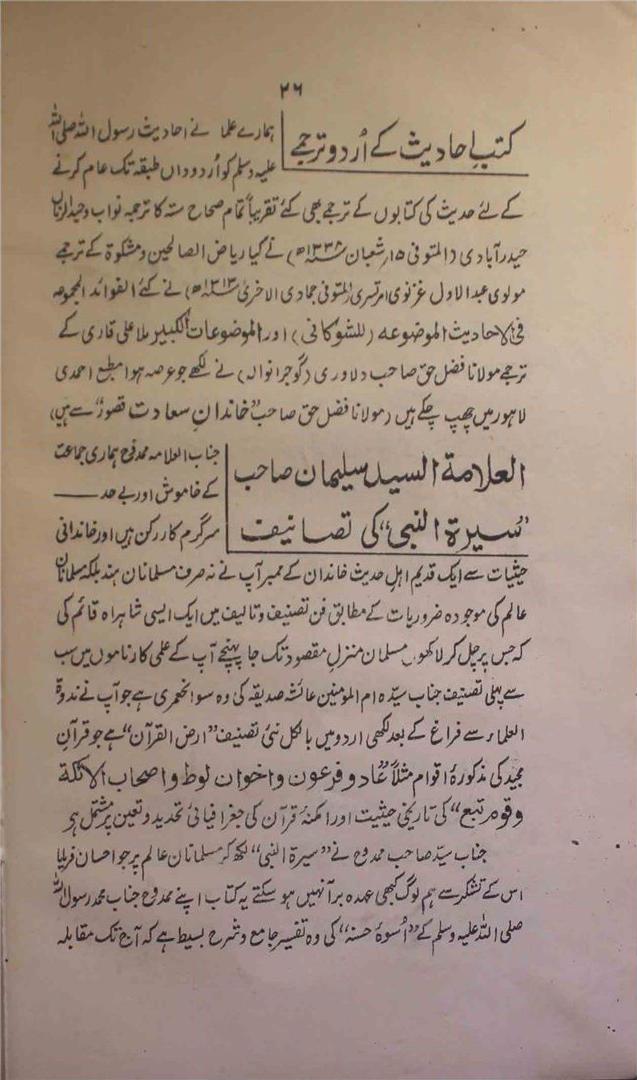 ۲۶
کتب احادیث کے اُردو ترجمے
ہمارے علما نے احادیث رسول اللہ صلی اللہ
علیہ وسلم کو اُردو داں طبقہ تک عام کرنے
کے لئے حدیث کی کتابوں کے ترجمے بھی کئے تقریباً تمام صحاح ستہ کا ترجمہ نواب وحید الزماں
حیدرآبادی (المتوفی ۱۵/شعبان ۱۳۳۸ھ) نے کیا ریاض الصالحین و مشکوٰۃ کے ترجمے
مولوی عبد الاول غزنوی امرتسری (المتوفی جمادی الاخریٰ ۱۳۱۳ھ) نے کئے الفوائد المجموعہ
فی الاحادیث الموضوعہ (للشوکانی) اور الموضوعات الکبیر ملا علی قاری کے
ترجمے مولانا فضل حق صاحب دلاوری (گوجرانوالہ) نے لکھے جو عرصہ ہوا مطبع احمدی
لاہور میں چھپ چکے ہیں (مولانا فضل حق صاحب خاندانِ سعادت قصور سے ہیں)
العلامة السید سلیمان صاحب
”سیرۃ النبی“ کی تصانیف
جناب العلامہ ممدوح ہماری جماعت
کے خاموش اور بے حد
سرگرم کار رکن ہیں اور خاندانی
حیثیات سے ایک قدیم اہل حدیث خاندان کے ممبر آپ نے نہ صرف مسلمانان ہند بلکہ مسلمانان
عالم کی موجودہ ضروریات کے مطابق فن تصنیف و تالیف میں ایک ایسی شاہراہ قائم کی
کہ جس پر چل کر لاکھوں مسلمان منزل مقصود تک جا پہنچے آپ کے علمی کارناموں میں سب
سے پہلی تصنیف جناب سیدہ ام المومنین عائشہ صدیقہ کی وہ سوانحعمری ہے جو آپ نے ندوۃ
العلماء سے فراغ کے بعد لکھی اردو میں بالکل نئی تصنیف ”ارض القرآن“ ہے جو قرآن
مجید کی مذکورۂ اقوام مثلاً عاد و فرعون و اخوان لوط و اصحاب الائکة
و قوم تبع“ کی تاریخی حیثیت اور امکنۂ قرآن کی جغرافیائی تحدید و تعین پر مشتمل ہر
جناب سید صاحب ممدوح نے ”سیرۃ النبی“ لکھ کر مسلمانان عالم پر جو احسان فرمایا
اس کے تشکر سے ہم لوگ کبھی عہدہ برآ نہیں ہو سکتے یہ کتاب اپنے ممدوح جناب محمد رسول اللہ
صلی اللہ علیہ وسلم کے ”اُسوۂ حسنہ“ کی وہ تفسیر جامع و شرح بسیط ہے کہ آج تک مقابلہ